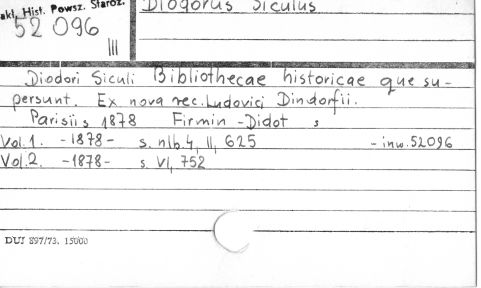 Diodorus Siculus
akł. Hist. Powsz. Staroż.
52 096
III
Diodori Siculi Bibliothecae historicae que su-
persunt. Ex nova rec. Ludovici Dindorfii.
Parisiis 1878 Firmin-Didot s
Vol.1. -1878- s. nlb.4, II, 625 - inw.52096
Vol.2. -1878- s. VI, 752
DUJ 897/73. 15000